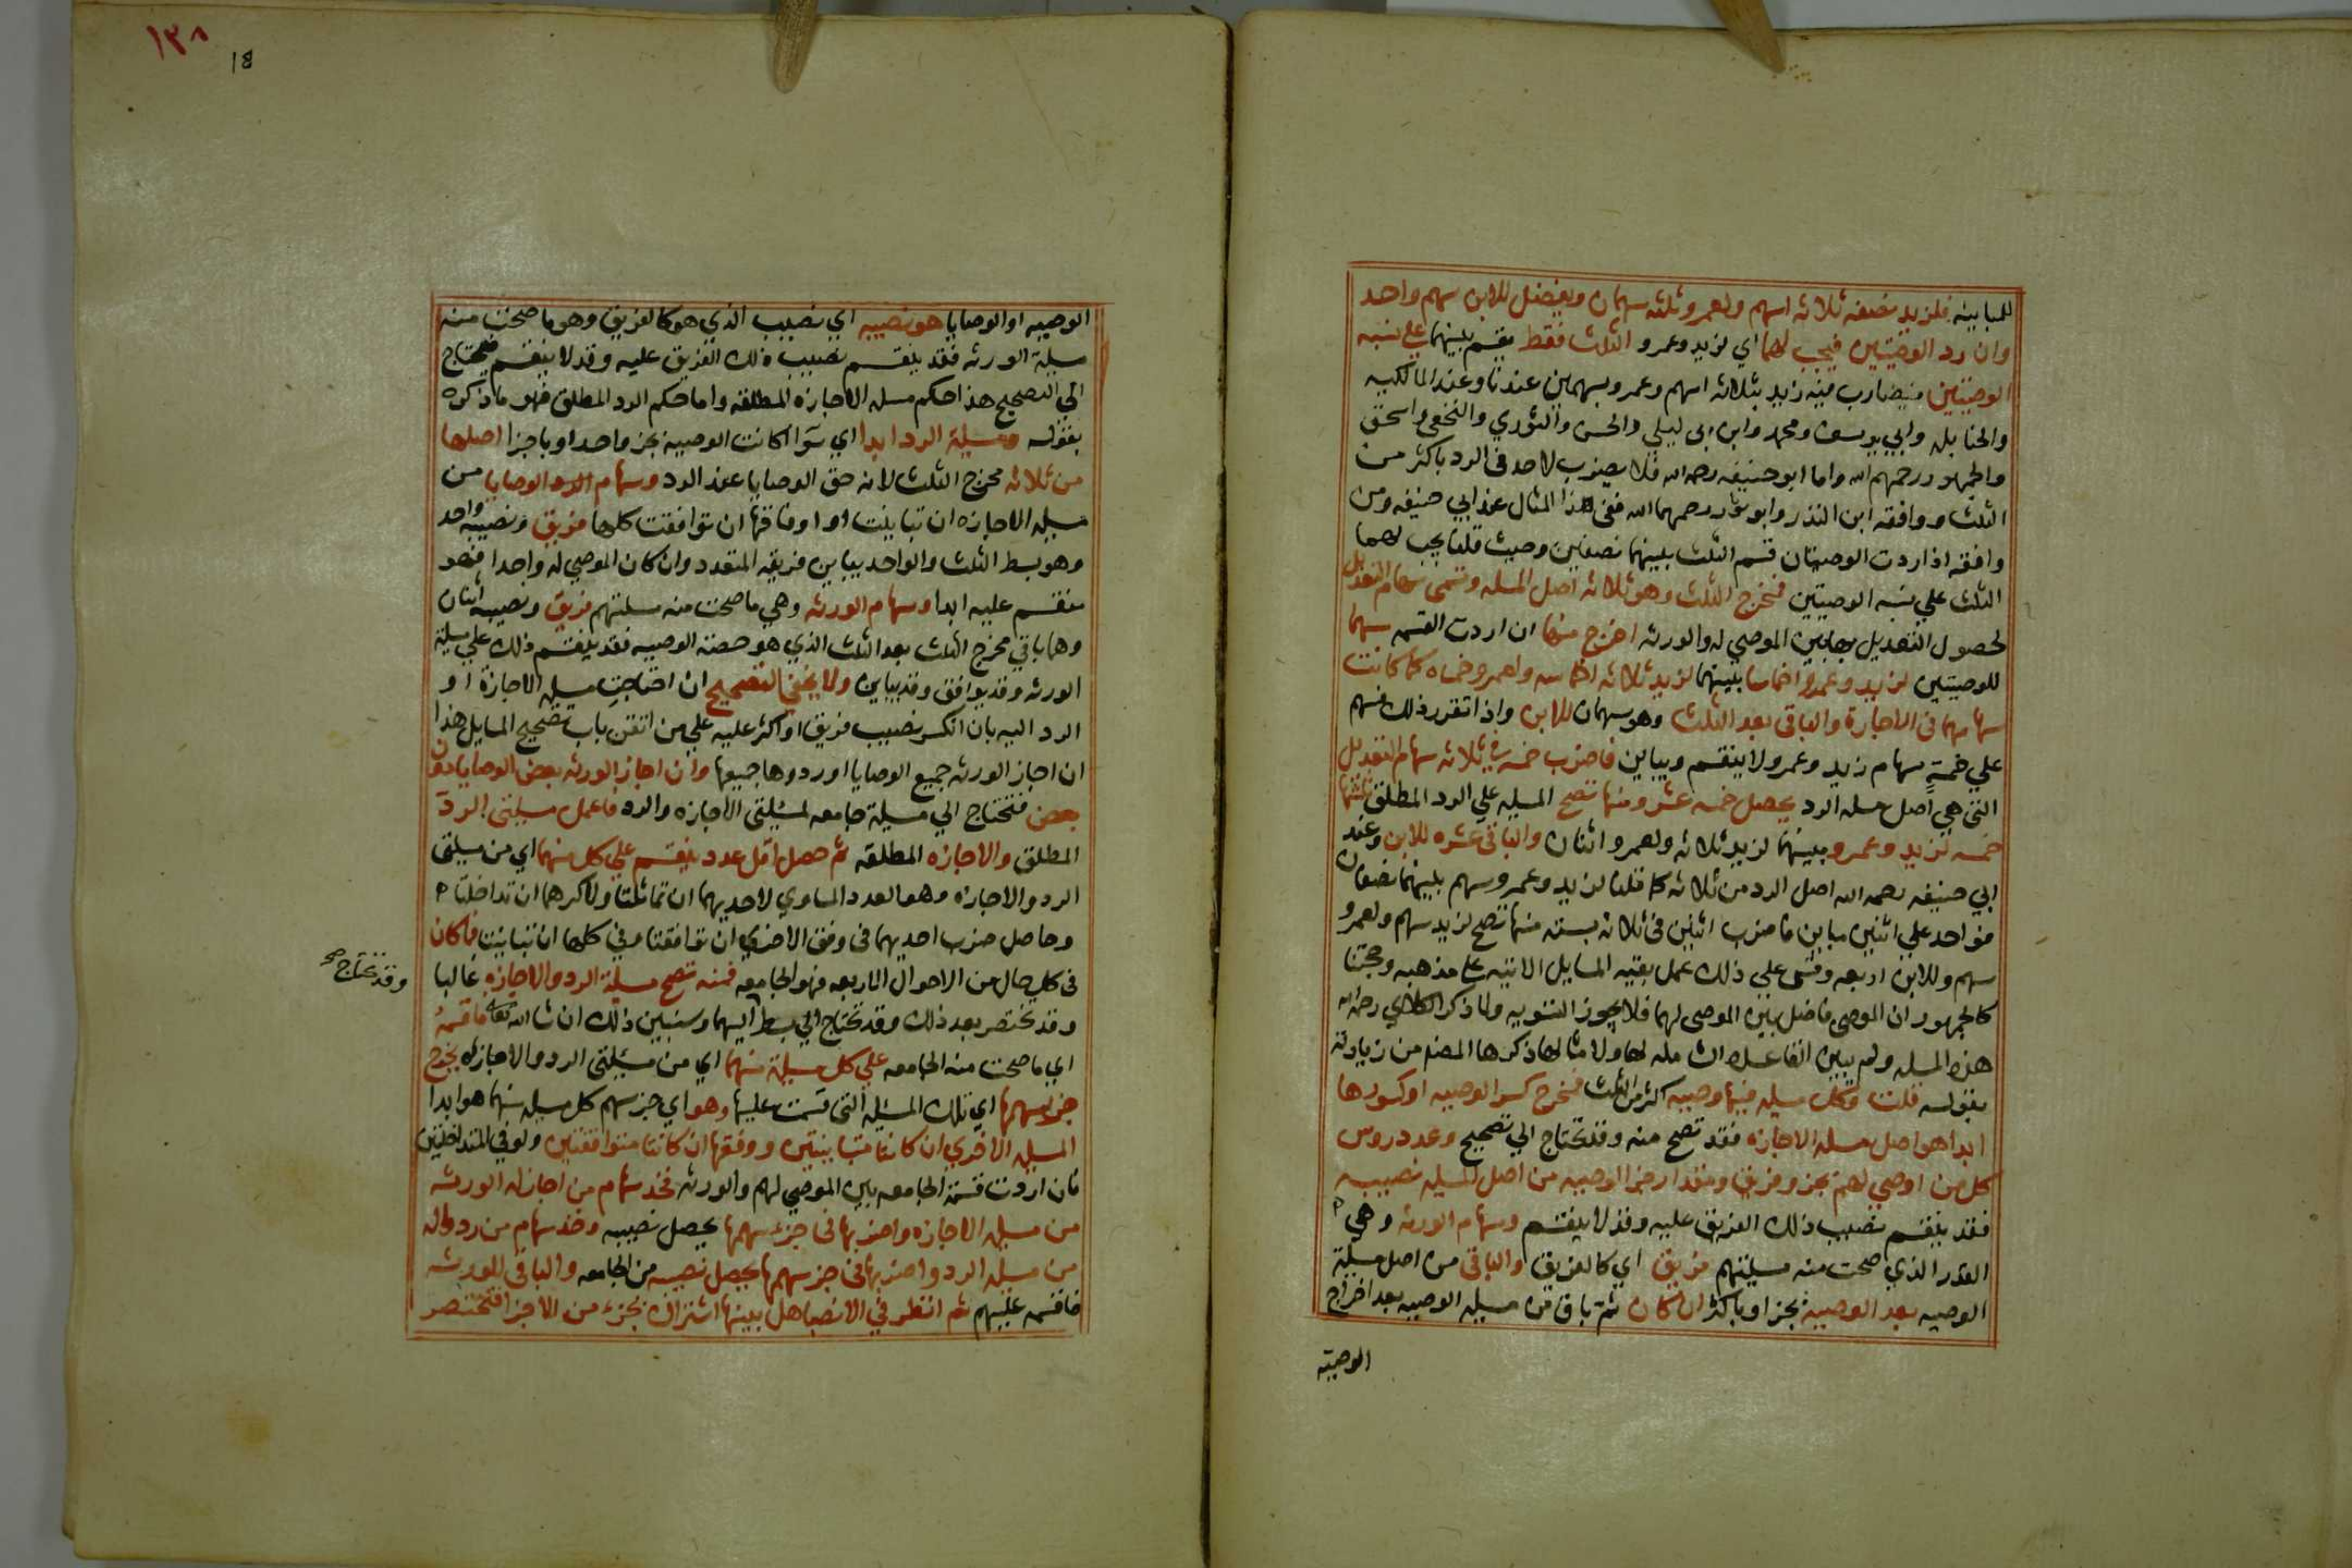 للمباينه فلزيد نصفه ثلاثه اسهم ولعمرو ثلثه سهمان ويفضل للابن سهم واحد
وان رد الوصيتين فيجب لهما اي لزيد وعمرو الثلث فقط يقسم بينهما على نسبه
الوصيتين فيضارب فيه زيد بثلاثه اسهم وعمرو بسهمين عندنا وعند المالكيه
والحنابله وابي يوسف ومحمد وابن ابى ليلى والحسن والثوري والنخعى واسحق
والجمهور رحمهم الله واما ابو حنيفه رحمه الله فلا يضرب لاحد فى الرد باكثر من
الثلث ووافقه ابن المنذر وابو ثور رحمهما الله ففى هذا المثال عند ابي حنيفه ومن
وافقه اذا ردت الوصيتان قسم الثلث بينهما نصفين وحيث قلنا يجب لهما
الثلث علي نسبه الوصيتين فمخرج الثلث وهو ثلاثه اصل المسله وتسمى سهام التعديل
لحصول التعديل بها بين الموصي له والورثه اخرج منها ان اردت القسمه سهما
للوصيتين لزيد وعمرو اخماسا بينهما لزيد ثلاثه اخماسه ولعمرو خمساه كما كانت
سهامهما فى الاجازة والباقى بعد الثلث وهو سهمان للابن واذا تقرر ذلك فسهم
علي خمسةٍ سهام زيد وعمرو لا ينقسم ويباين فاضرب خمسه في ثلاثه سهام التعديل
التى هي اصل مسله الرد يحصل خمسه عشر ومنها تصح المسيله علي الرد المطلق ثلثها
خمسه لزيد وعمرو بينهما لزيد ثلاثه ولعمرو اثنان والباقى عشره للابن وعند
ابي حنيفه رحمه الله اصل الرد من ثلاثه كما قلنا لزيد وعمرو سهم بينهما نصفان
فواحد علي اثنين مباين فاضرب اثنين فى ثلاثه بسته منها تصح لزيد سهم ولعمرو
سهم وللابن اربعه وقس علي ذلك عمل بقيه المسايل الاتيه على مذهبه وحجتنا
كالجمهور ان الموصى فاضل بين الموصى لهما فلا يجوز التسويه ولما ذكر الكلائي رحمه الله
هذه المسله ولم يبين القاعده ان مله لها ولامثالها ذكرها المصنف من زيادته
بقوله قلت وكل مسيله فيها وصيه اكثر من الثلث فمخرج كسر الوصيه او كسورها
ابدا هو اصل مسله الاجازه فقد تصح منه وقد تحتاج الي تصحيح وعدد روس
كل من اوصي لهم بجزو فريق ومقدار جزا الوصيه من اصل المسيله نصيبه
فقد ينقسم نصيب ذلك الفريق عليه وقد لا ينقسم وسهام الورثه وهي
القدر الذي صحت منه مسيلتهم فريق اي كالفريق والباقى من اصل مسيلة
الوصيه بعد الوصيه بجز او باكثر ان كان ثم باق من مسيله الوصيه بعد اخراج
الوصيه
١٣٨
81
الوصيه او الوصايا هو نصيبه اي نصيب الذي هو كالفريق وهو ما صحت منه
مسيلة الورثه فقد ينقسم نصيب ذلك الفريق عليه وقد لا ينقسم فيحتاج
الي التصحيح هذا حكم مسله الاجازه المطلقه واما حكم الرد المطلق فهو ما ذكره
بقوله ومسيلة الرد ابدا اي سوآ كانت الوصية بجز واحد او باجزا اصلها
من ثلاثه مخرج الثلث لانه حق الوصايا عند الرد وسهام الوصايا من
مسيله الاجازه ان تباينت او اوفاقها ان توافقت كلها فريق ونصيبه واحد
وهو بسط الثلث والواحد يباين فريقه المتعدد وان كان الموصي له واحدا فهو
منقسم عليه ابدا وسهام الورثه وهي ما صحت منه مسلتهم فريق ونصيبه اثنان
وهما باقي مخرج الثلث بعد الثلث الذي هو حصة الوصيه فقد ينقسم ذلك علي مسيلة
الورثه وقد يوافق وقد يباين ولا يخفى التصحيح ان احتاجت مسيله الاجازة او
الرد اليه بان انكسر نصيب فريق او اكثر عليه علي من اتقن باب تصحيح المسايل هذا
ان اجاز الورثه جميع الوصايا او ردوها جميعها وان اجاز الورثه بعض الوصايا دون
بعض فتحتاج الي مسيلة جامعه لمسيلتى الاجازه والرد فاعمل مسيلتى الردّ
المطلق والاجازه المطلقه ثم حصل اقل عدد ينقسم علي كل منهما اي من مسيلتى
الرد والاجازه وهو العدد المساوي لاحديهما ان تماثلتا ولاكبرهما ان تداخلتا
وحاصل ضرب احديهما فى وفق الاخري ان توافقتا وفي كلها ان تباينتا فما كان
فى كل حال من الاحوال الاربعه فهو الجامعه فمنه تصح مسيلة الرد والاجازه غالبا
وقد تحتاج صح
وقد تختصر بعد ذلك وقد تحتاج الي بسط اليهما وسنبين ذلك ان شا الله تعالى فاقسمهُ
اي ما صحت منه الجامعه علي كل مسيلة منهما اي من مسيلتى الرد والاجازه يخرج
جز سهمها اي تلك المسيله التى قسمت عليها وهو اي جز سهم كل مسيله منهما هو ابدا
المسيله الاخري ان كانتا متباينتين ووفقها ان كانتا متوافقتين ولو في المتداخلتين
فان اردت قسمة الجامعه بين الموصي لهم والورثه فخذ سهام من اجاز له الورثه
من مسيله الاجازه واضربها فى جزء سهمها يحصل نصيبه وخذ سهام من ردوا له
من مسيله الرد واضربها فى جز سهمها يحصل نصيبه من الجامعه والباقى للورثه
فاقسمه عليهم ثم انظر في الانصبا هل بينها اشتراك بجزء من الاجزا فتختصر